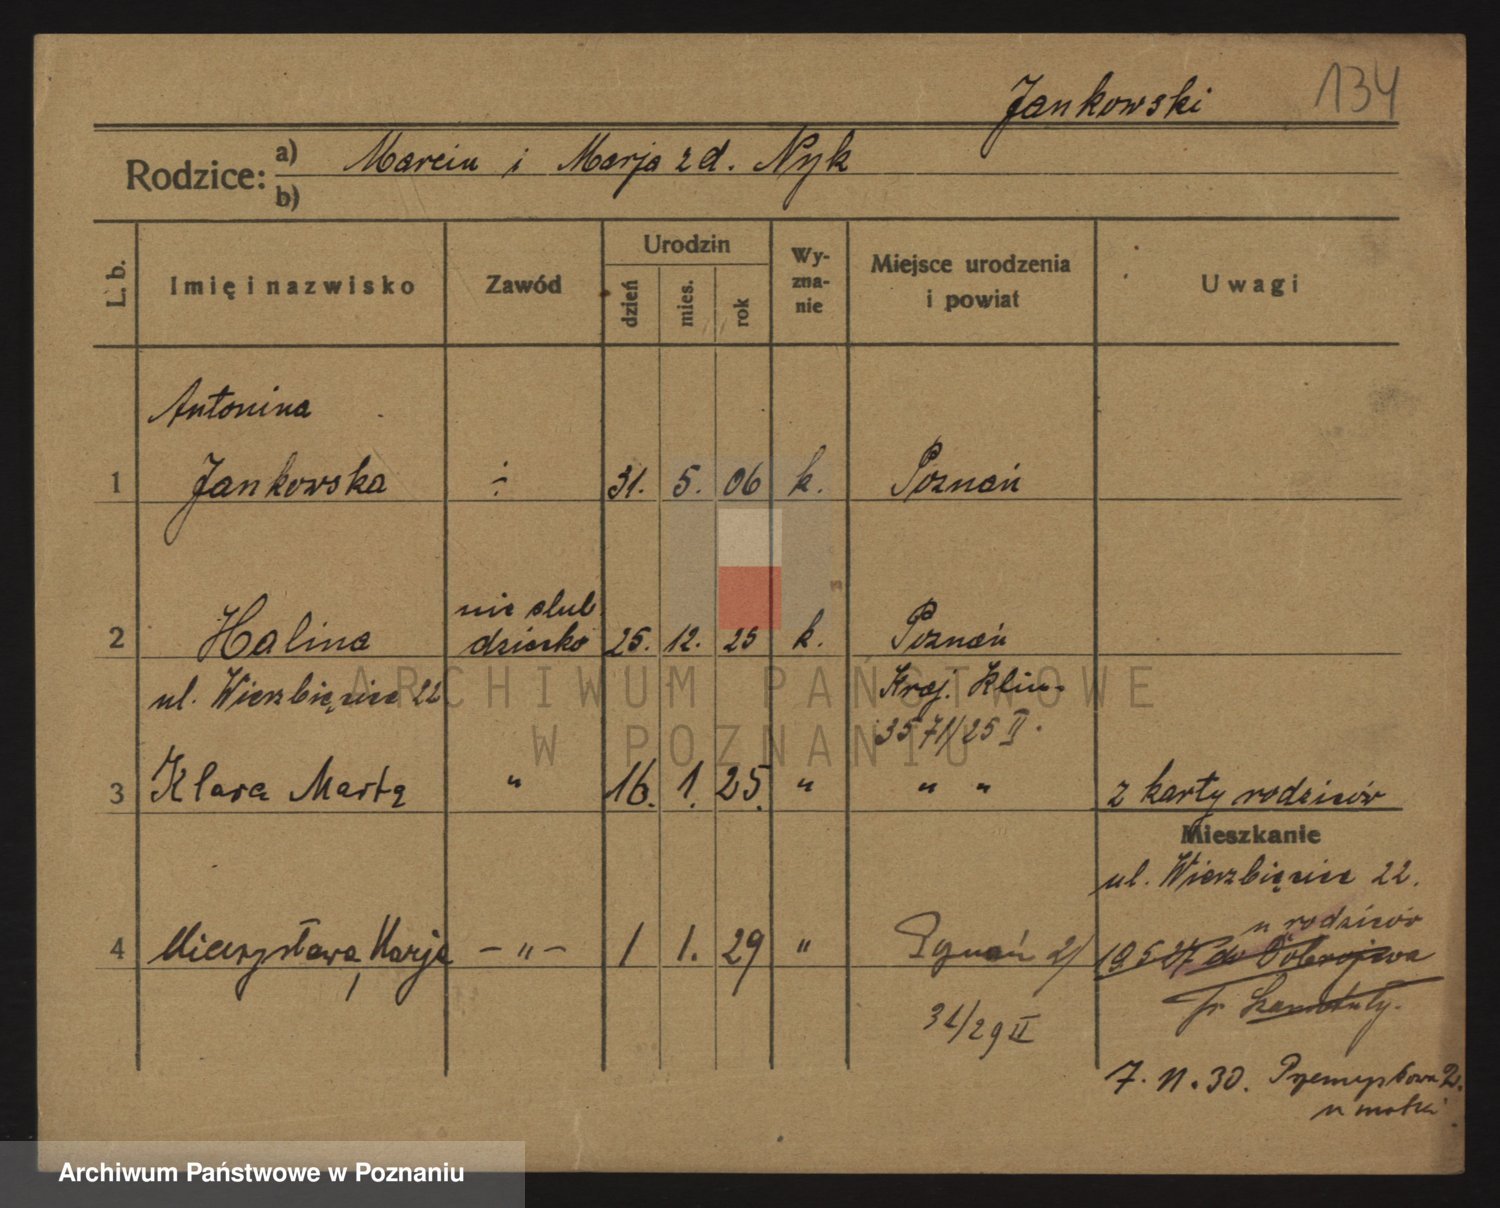 Jankowski 134
Rodzice: a) Marcin i Marja z d. Nyk
b)
L. b. Imię i nazwisko Zawód Urodzin dzień mies. rok Wyznanie Miejsce urodzenia i powiat Uwagi
Antonina
1 Jankowska ÷ 31. 5. 06 k. Poznań
nie slub
2 Halina dziecko 25. 12. 25 k. Poznań
ul. Wierzbięcice 22 Kraj. Klin.
3571/25 II.
3 Klara Marta " 16. 1. 25. " " " z karty rodziców
Mieszkanie
ul. Wierzbięcice 22.
u rodziców
4 Mieczysława, Marja – " – 1 1. 29 " Poznań 19 5 27 do Dobrojewa
31/29 II Szamotuły.
7. 11. 30. Przemysłowa
u matki
ARCHIWUM PAŃSTWOWE
W POZNANIU
Archiwum Państwowe w Poznaniu